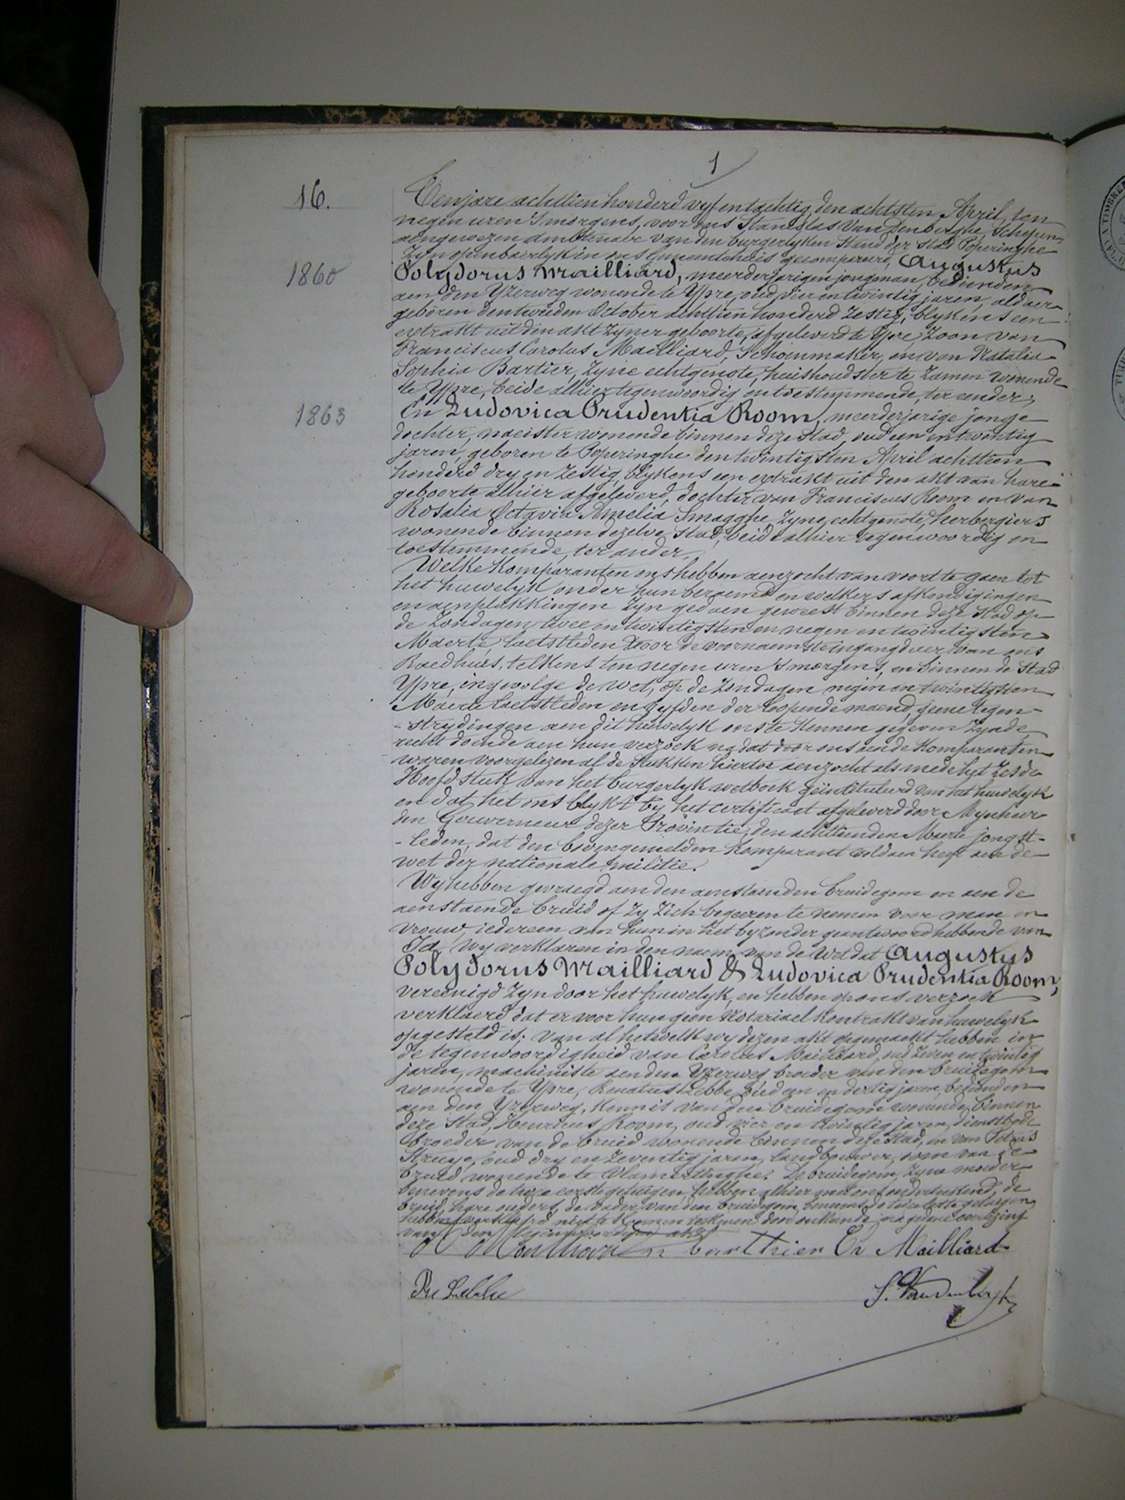 1
16.
Ten jare achttien honderd vyf en tachtig, den achtsten April, ten
negen uren 's morgens, voor ons Stanislas Van Den Berghe, Schepen,
aengewezen ambtenaer van den burgerlyken Stand der Stad Poperinghe
zyn openbaerlyk in ons Gemeentehuis gecompareerd, Augustus
1860
Polydorus Mailliard, meerderjarigen jongman, bedienden
aen den Yzerweg wonende te Ypre, oud vier en twintig jaren, aldaer
geboren den tweeden October achttien honderd zestig, blykens een
extrakt uit den akt zyner geboorte, afgeleverd te Ypre, Zoon van
Franciscus Carolus Mailliard, Schoenmaker, en van Natalia
Sophia Bartier, zyne echtgenote, huishoudster te zamen wonende
te Ypre, beide alhier tegenwoordig en toestemmende, ter eender;
1863
En Ludovica Prudentia Room, meerderjarige jonge
dochter, naeister wonende binnen deze stad, oud een en twintig
jaren, geboren te Poperinghe den twintigsten April achttien
honderd dry en zestig, blykens een extrakt uit den akt van hare
geboorte alhier afgeleverd, dochter van Franciscus Room en van
Rosalia Octavia Amelia Smagghe, zyne echtgenote, herbergiers
wonende binnen dezelve stad, beide alhier tegenwoordig en
toestemmende, ter ander.
Welke Komparanten ons hebben aenzocht van voort te gaen tot
het huwelyk onder hun beraemd en welkers afkondigingen
en aenplakkingen zyn gedaen geweest binnen deze stad op
de Zondagen twee en twintigsten en negen en twintigsten
Maerte laetstleden voor de voornaemste ingangdeur van ons
Raedhuis, telkens ten negen uren 's morgens, en binnen de Stad
Ypre, ingevolge de wet, op de Zondagen negen en twintigsten
Maerte laetstleden en vyfden der loopende maend, geene tegen-
-strydingen aen dit huwelyk ons te kennen gegeven zynde,
recht doende aen hun verzoek na dat door ons aen de Komparanten
waren voorgelezen al de stukken hiertoe aenzocht als mede het zesde
Hoofdstuk van het burgerlyk wetboek geintituleerd van het huwelyk
en dat het ons blykt by het certificaet afgeleverd door Mynheer
den Gouverneur dezer Provintie, den achttienden Maerte jongst-
-leden, dat den bovengemelden Komparant voldaen heeft aen de
wet der nationale militie.
Wy hebben gevraegd aen den aenstaenden bruidegom en aen de
aenstaende bruid of zy zich begeeren te nemen voor man en
vrouw, iedereen van hun in het byzonder geantwoord hebbende van
Ja, wy verklaren in den naem van de wet dat Augustus
Polydorus Mailliard & Ludovica Prudentia Room,
vereenigd zyn door het huwelyk, en hebben op ons verzoek
verklaerd dat er voor hun geen Notariael Kontrakt van huwelyk
opgesteld is; van al hetwelk wy dezen akt opgemaekt hebben in
de tegenwoordigheid van Carolus Mailliard, oud zeven en twintig
jaren, machiniste aen den Yzerweg, broeder van den bruidegom
wonende te Ypre, Renatus Lebbe, oud een en dertig jaren, bedienden
aen den Yzerweg, Kennis van den bruidegom, wonende binnen
deze stad, Henricus Room, oud vier en twintig jaren, dienstbode
broeder van de bruid wonende binnen deze stad, en van Petrus
oud dry en zeventig jaren, landbouwer, oom van de
bruid wonende te Vlamertinghe. De bruidegom, zyne moeder
benevens de twee eerste getuigen hebben alhier met ons onderteekend, de
bruid, hare ouders, de vader van den bruidegom, benevens de twee laetste getuigen
hebben verklaerd niet te kunnen teekenen door onkunde, na gedane voorlezing
van den tegenwoordigen akt.
barthier Ch Mailliard
Re Lebbe
S. Vandenberghe